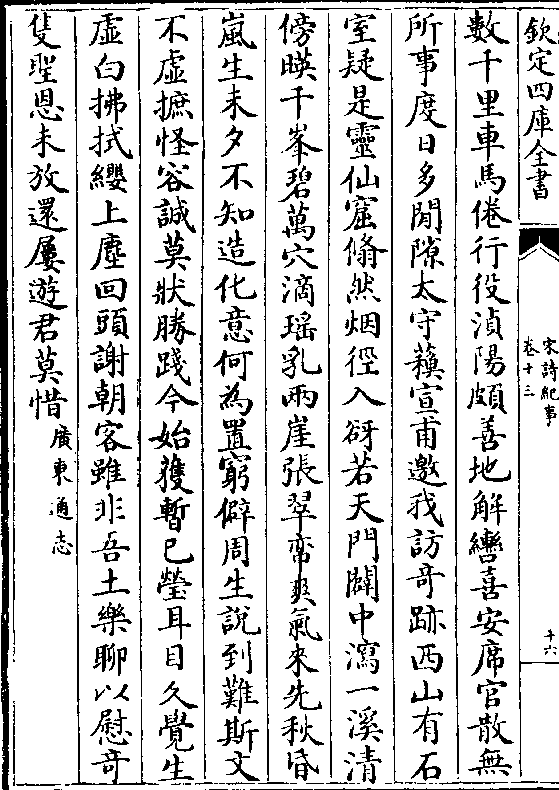 欽定四庫全書
宋詩紀事
卷十三
十六
數千里車馬倦行役湞陽頗善地解轡喜安席官散無
所事度日多閒隙太守蘓宣甫邀我訪奇跡西山有石
室疑是靈仙窟翛然烟徑入谺若天門闢中瀉一溪清
傍映千峯碧萬穴滴瑶乳兩崖張翠帟爽氣來先秋昏
嵐生未夕不知造化意何為置窮僻周生說到難斯文
不虛摭怪容誠莫狀勝踐今始獲暫已瑩耳目久覺生
虛白拂拭纓上塵回頭謝朝客雖非吾土樂聊以慰奇
隻聖恩未放還屢遊君莫惜廣東通志